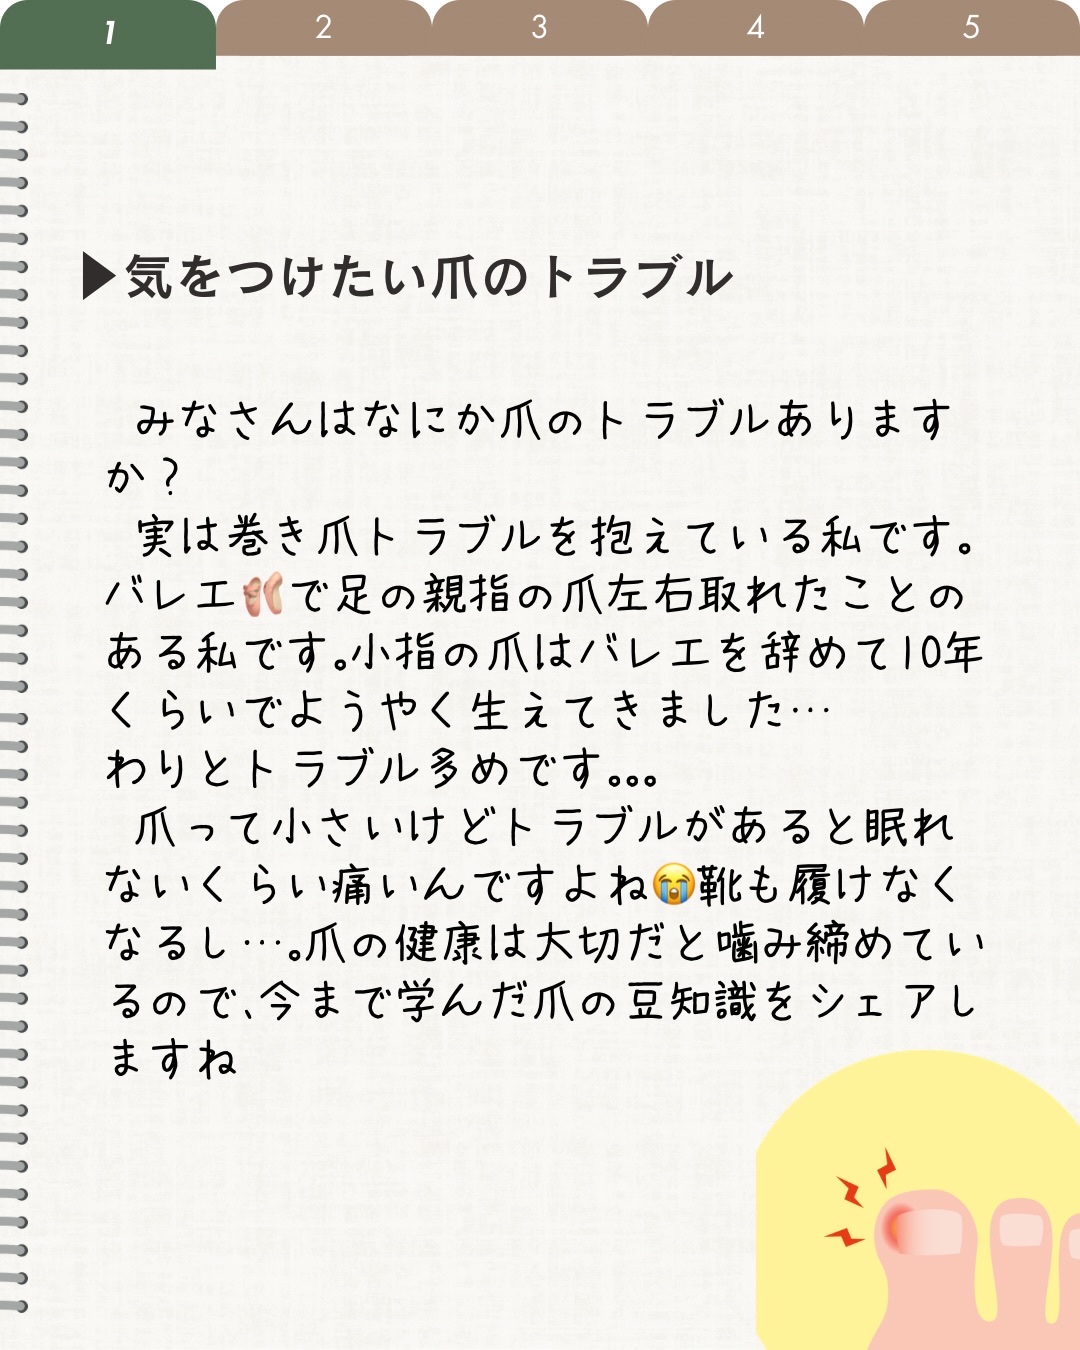 1 2 3 4 5
▶気をつけたい爪のトラブル
みなさんはなにか爪のトラブルあります
か？
実は巻き爪トラブルを抱えている私です。
バレエ🩰で足の親指の爪左右取れたことの
ある私です。小指の爪はバレエを辞めて10年
くらいでようやく生えてきました…
わりとトラブル多めです。。。
爪って小さいけどトラブルがあると眠れ
ないくらい痛いんですよね😭靴も履けなく
なるし…。爪の健康は大切だと噛み締めてい
るので、今まで学んだ爪の豆知識をシェアし
ますね